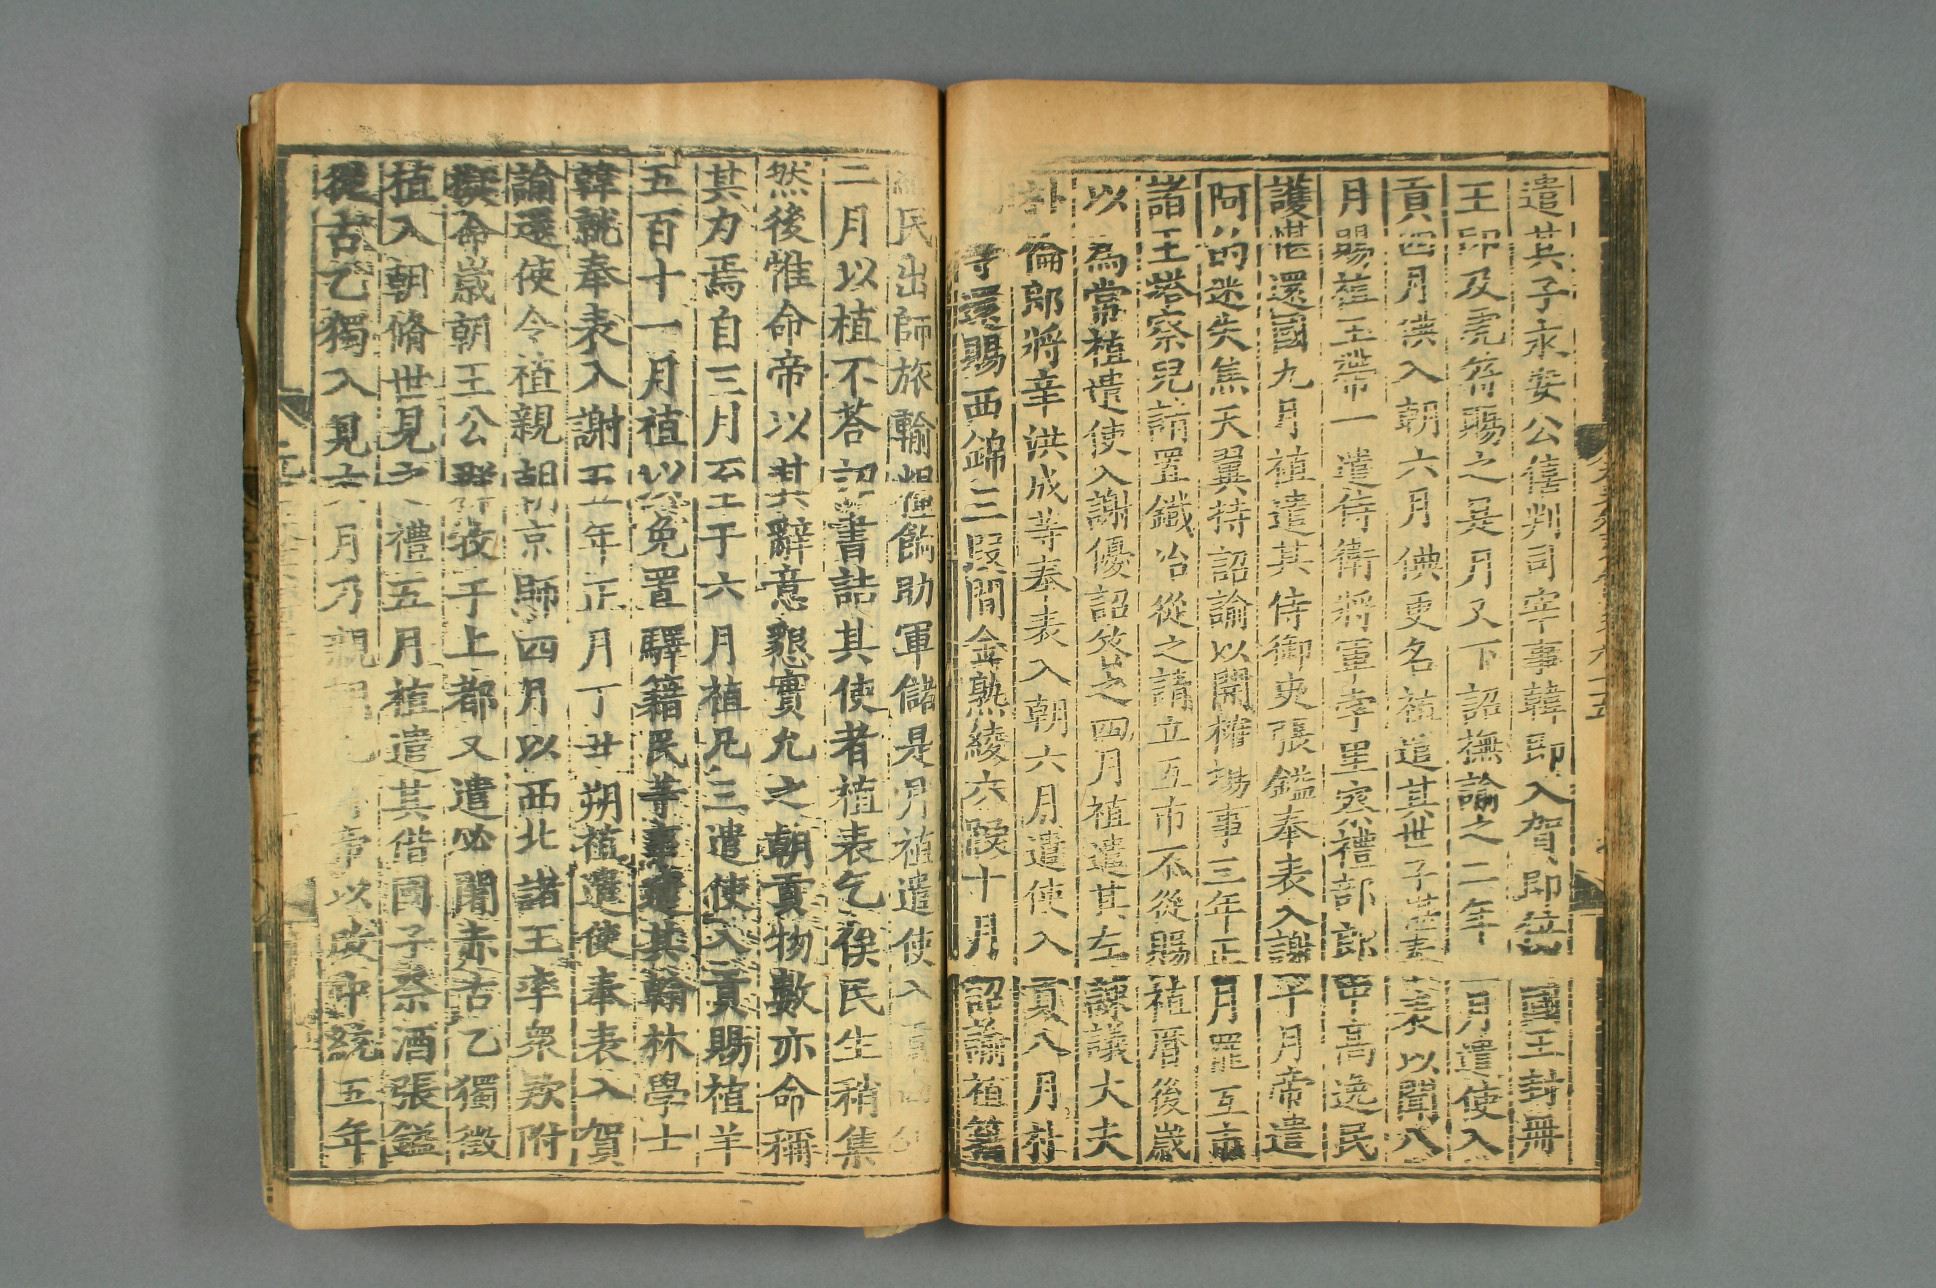 遣其子永安公僖判司宰事韓即入賀即位國王封冊
王印及虎符賜之是月又下詔撫諭之二年月遣使入
貢四月倎入朝六月倎更名禃遣其世子表以聞八
月賜禃玉帶一遣侍衛將軍孛里察禮部郎中高逸民
護愖還國九月禃遣其侍御史張鎰奉表入謝十月帝遣
阿的迷失焦天翼持詔諭以開榷場事三年正月罷互市
諸王塔察兒請置鐵冶從之請立互市不從賜禃曆後歲
以為常禃遣使入謝優詔荅之四月禃遣其左諫議大夫
朴倫郎將辛洪成等奉表入朝六月遣使入貢八月朴
等還賜西錦三段間金熟綾六段十月詔諭禃籍
編民出師旅輸糧餉助軍儲是月禃遣使入
二月以植不荅詔書詰其使者植表乞俟民生稍集
然後惟命帝以其辭意懇實允之朝貢物數亦命稱
其力焉自三月至于六月植凡三遣使入貢賜植羊
五百十一月植以免置驛籍民等事遣其翰林學士
韓就奉表入謝五年正月丁丑朔植遣使奉表入賀
諭還使令植親朝京師四月以西北諸王率衆欵附
擬今歲朝王公群牧于上都又遣必闍赤古乙獨徵
植入朝脩世見之禮五月植遣其借國子祭酒張鎰
從古乙獨入見六月乃親朝九帝以改中統五年